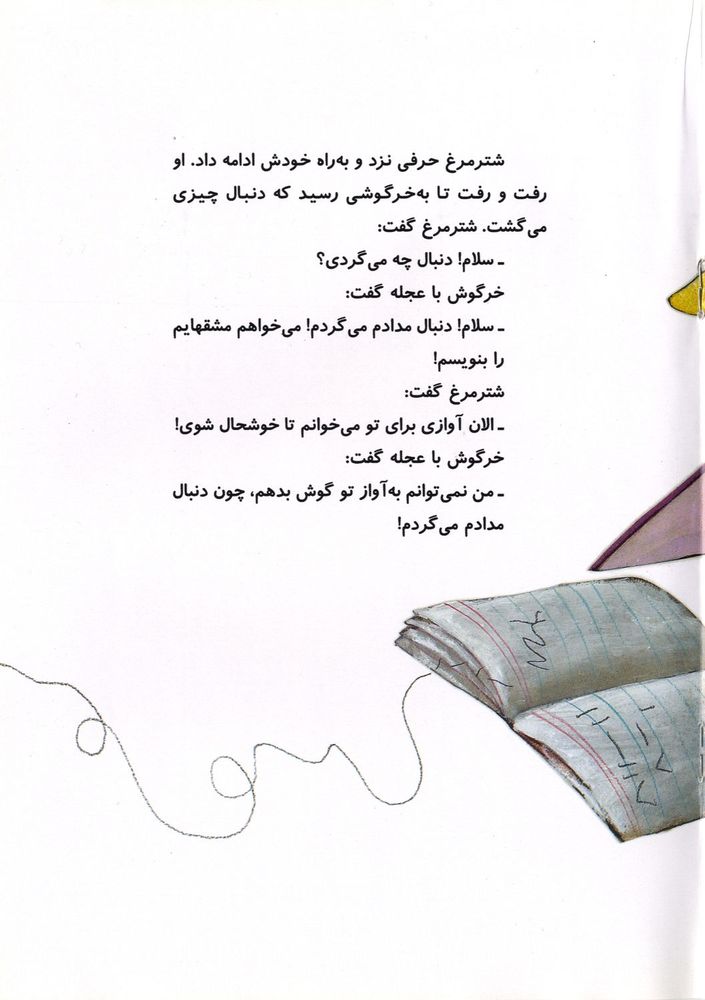 شترمرغ حرفی نزد و به‌راه خودش ادامه داد. او
رفت و رفت تا به‌خرگوشی رسید که دنبال چیزی
می‌گشت. شترمرغ گفت:
ـ سلام! دنبال چه می‌گردی؟
خرگوش با عجله گفت:
ـ سلام! دنبال مدادم می‌گردم! می‌خواهم مشقهایم
را بنویسم!
شترمرغ گفت:
ـ الان آوازی برای تو می‌خوانم تا خوشحال شوی!
خرگوش با عجله گفت:
ـ من نمی‌توانم به‌آواز تو گوش بدهم، چون دنبال
مدادم می‌گردم!